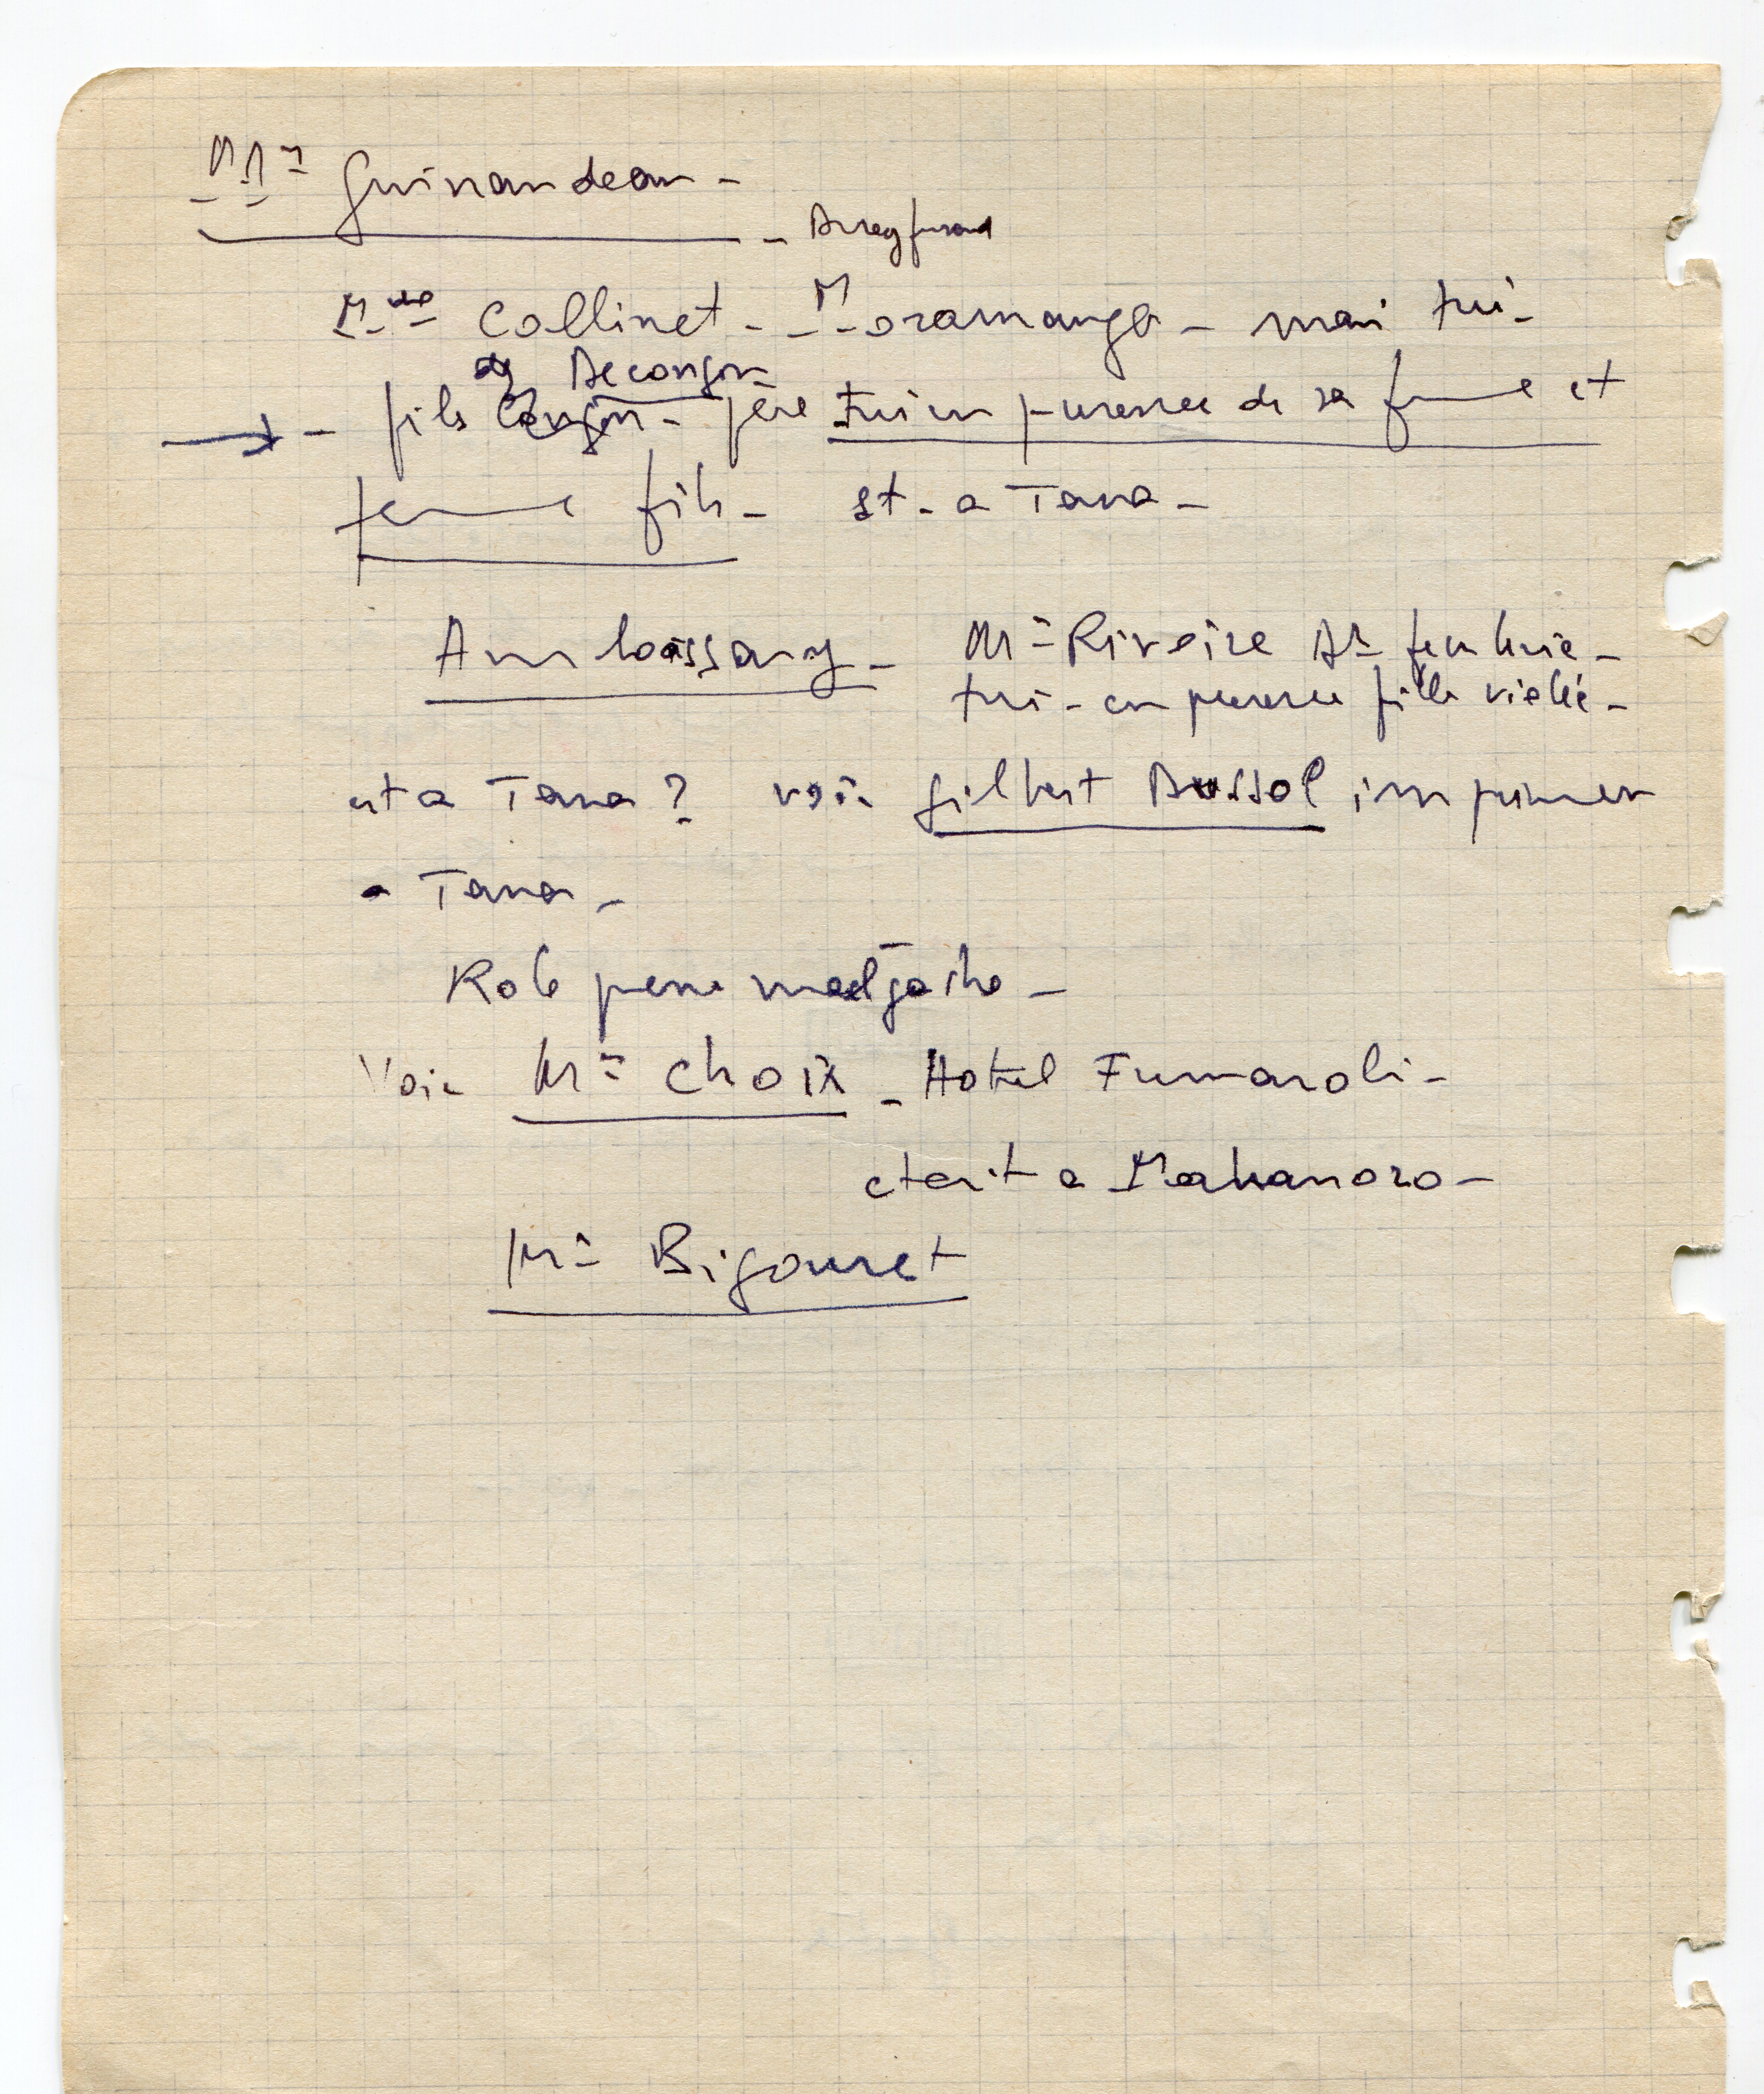 Mr Guinaudeau -
Mme Collinet - Moramanga - mari tué -
de Decongon
→ - fils - père tué en présence de sa femme et
femme fils - est - a Tana -
Amboasary - Mr Riveire
tué - en presence fille violée -
est a Tana ? voir Gilbert Bussol imprimeur
a Tana -
Role presse malgache -
Voir Mr Choix - Hotel Fumaroli -
etait a Mahanoro -
Mr Bigouret